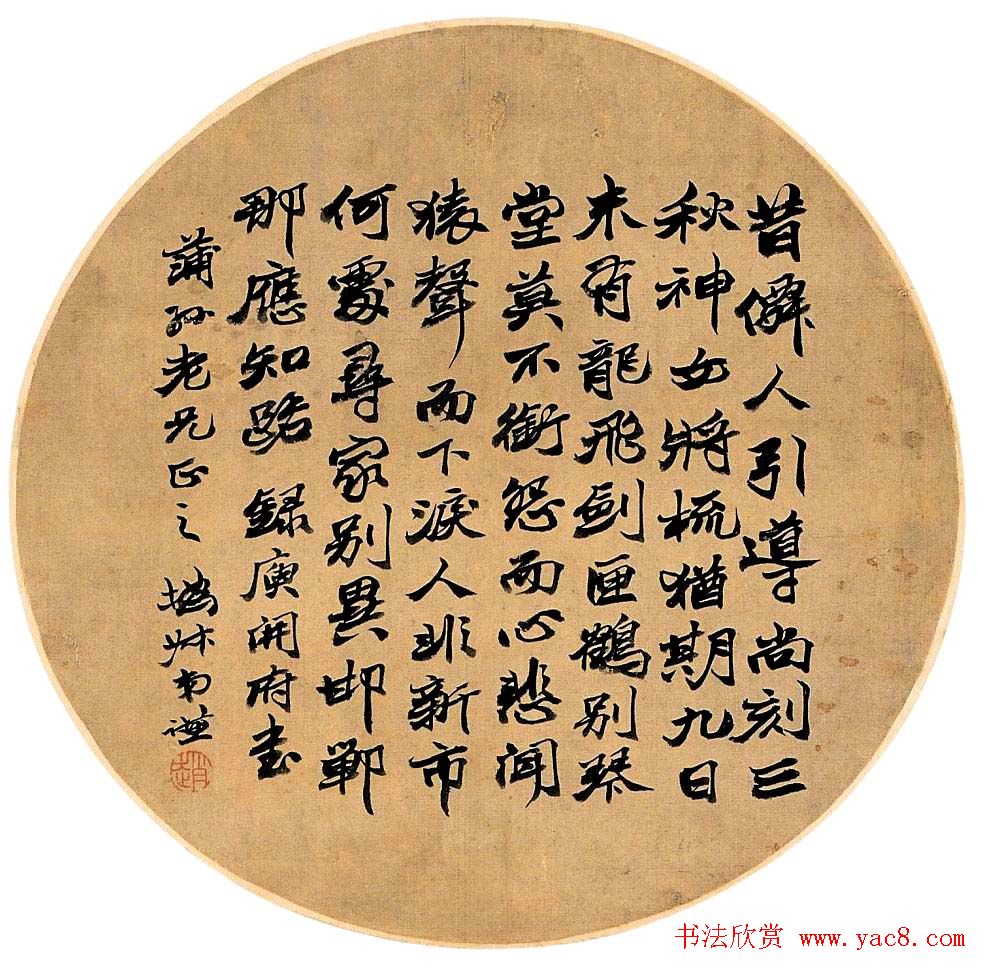 昔僊人引導尚刻三
秋神女將梳猶期九日
未有龍飛劍匣鶴别琹
堂莫不銜怨而心悲聞
猿聲而下淚人非新市
何處尋家别異邯鄲
那應知路 録庾開府書
蒲孫老兄正之 撝叔弟謙
趙
书法欣赏 www.yac8.com